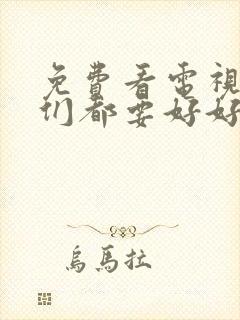 免費看電視
们都要好好
烏馬拉